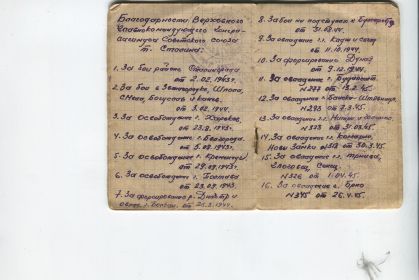 Благодарности Верховного
Главнокомандующего Генера-
лиссимуса Советского Союза
т. Сталина:
1. За бои в районе Сталинграда
от 2.02.1943г.
2. За бои в Звенигородке, Шпола,
Смела, Богуслав и Канев,
от 3.02.44г.
3. За освобождение г. Харьков,
от 23.08.1943г.
4. За освобождение г. Белгорода
от 5.08.1943г.
5. За освобождение г. Кременчуг
от 29.09.1943г.
6. За освобождение г. Полтава
от 23.09.1943г.
7. За форсирование р. Днестр и
г. Бельцы от 26.3.1944г.
8. За бои на подступах к Бухаресту
от 31.08.44г.
9. За овладение г.г. Клуж и Сегед
от 11.10.1944г.
10. За форсирование Дуная
от 9.12.1944г.
11. За овладение г. Будапешт
№277 от 13.2.45г.
12. За овладение г. Банска-Штявница
№293 от 7.3.45г.
13. За овладение г.г. Нитра и Галанта
№323 от 31.03.45г.
14. За овладение г.г. Комарно,
Нове Замки №318 от 30.3.45г.
15. За овладение г.г. Трнава,
Глоговец, Сенец
№326 от 1.04.45г.
16. За овладение г. Брно
№345 от 26.4.45г.